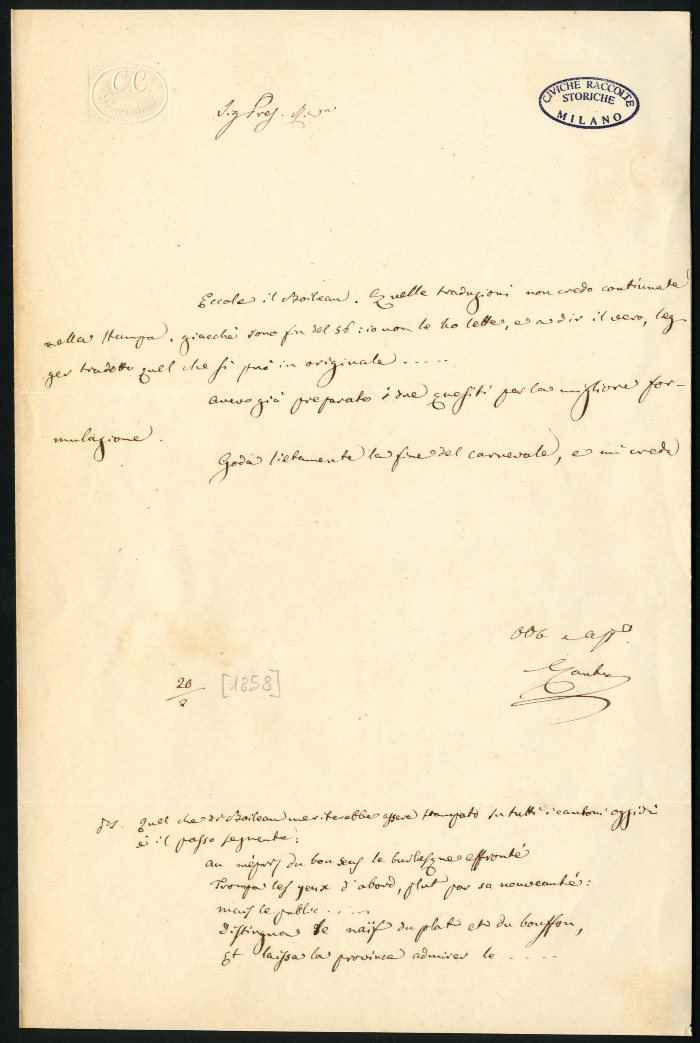 C C
CIVICHE RACCOLTE
STORICHE
MILANO
Sig Pres.
Eccole il Boileau. Quelle traduzioni non credo continuate
nella stampa, giacchè sono fin del 56: io non le ho lette, e a dir il vero, leg-
ger tradotto quel che si può in originale .....
avevo già preparato i due quesiti per la migliore for-
mulazione.
Goda lietamente la fine del carnevale, e mi creda
obb e aff°
20
2
[1858]
Ps. Quel che di Boileau meriterebbe essere stampato su tutti i cantoni oggidì
è il passo seguente:
au mépris du bon sens le burlesque effronté
Trompa les yeux d'abord, plut par sa nouveauté:
mais le public .....
distingua le naïf du plat et du bouffon,
Et laissa la province admirer le ....